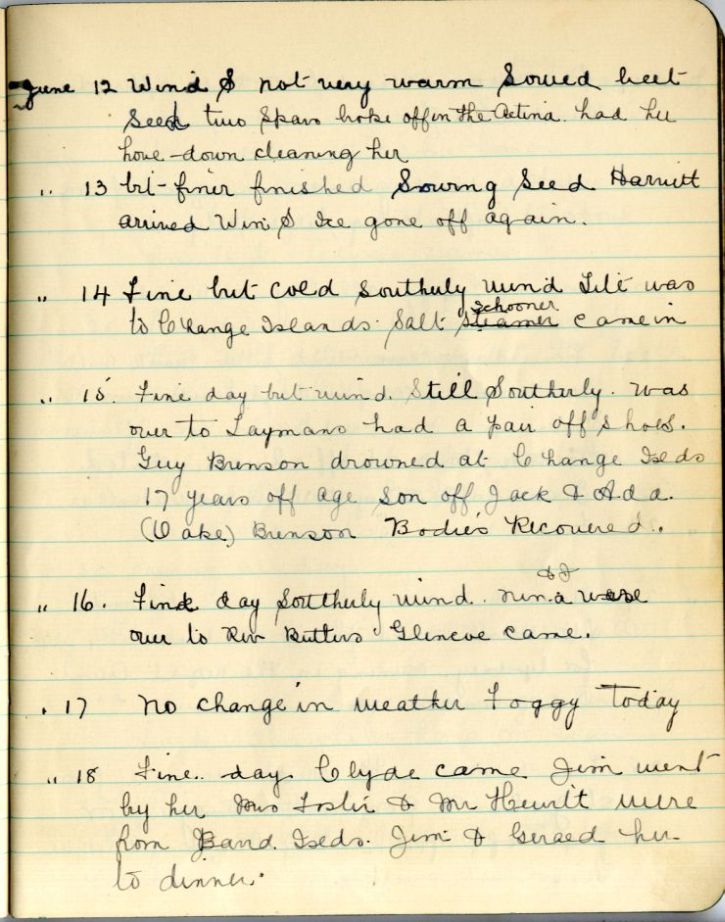 June 12 Wind S not very warm Sowed beet
Seed two Spars broke off in the Aetina. had her
hove-down cleaning her
" 13 bit-finer finished Sowing Seed Harriett
arrived Win S Ice gone off again.
" 14 Fine but cold Southerly wind Tilt was
schooner
to Change Islands. Salt steamer came in
" 15. Fine day but wind. Still Southerly. was
over to Laymans had a pair off shoes.
Guy Brenson drowned at Change Islds
17 years off age Son off Jack & Ada.
(Oake) Brenson Bodies Recovered.
& I
" 16. Fine day Southerly wind. were
over to Rev Butlers Glencoe came.
" 17 No change in weather Foggy Today
" 18 Fine.. day. Clyde came Jim went
by her Mrs Foster & Mr Hewitt were
from Islds. Jim & Geraed her
to dinner.